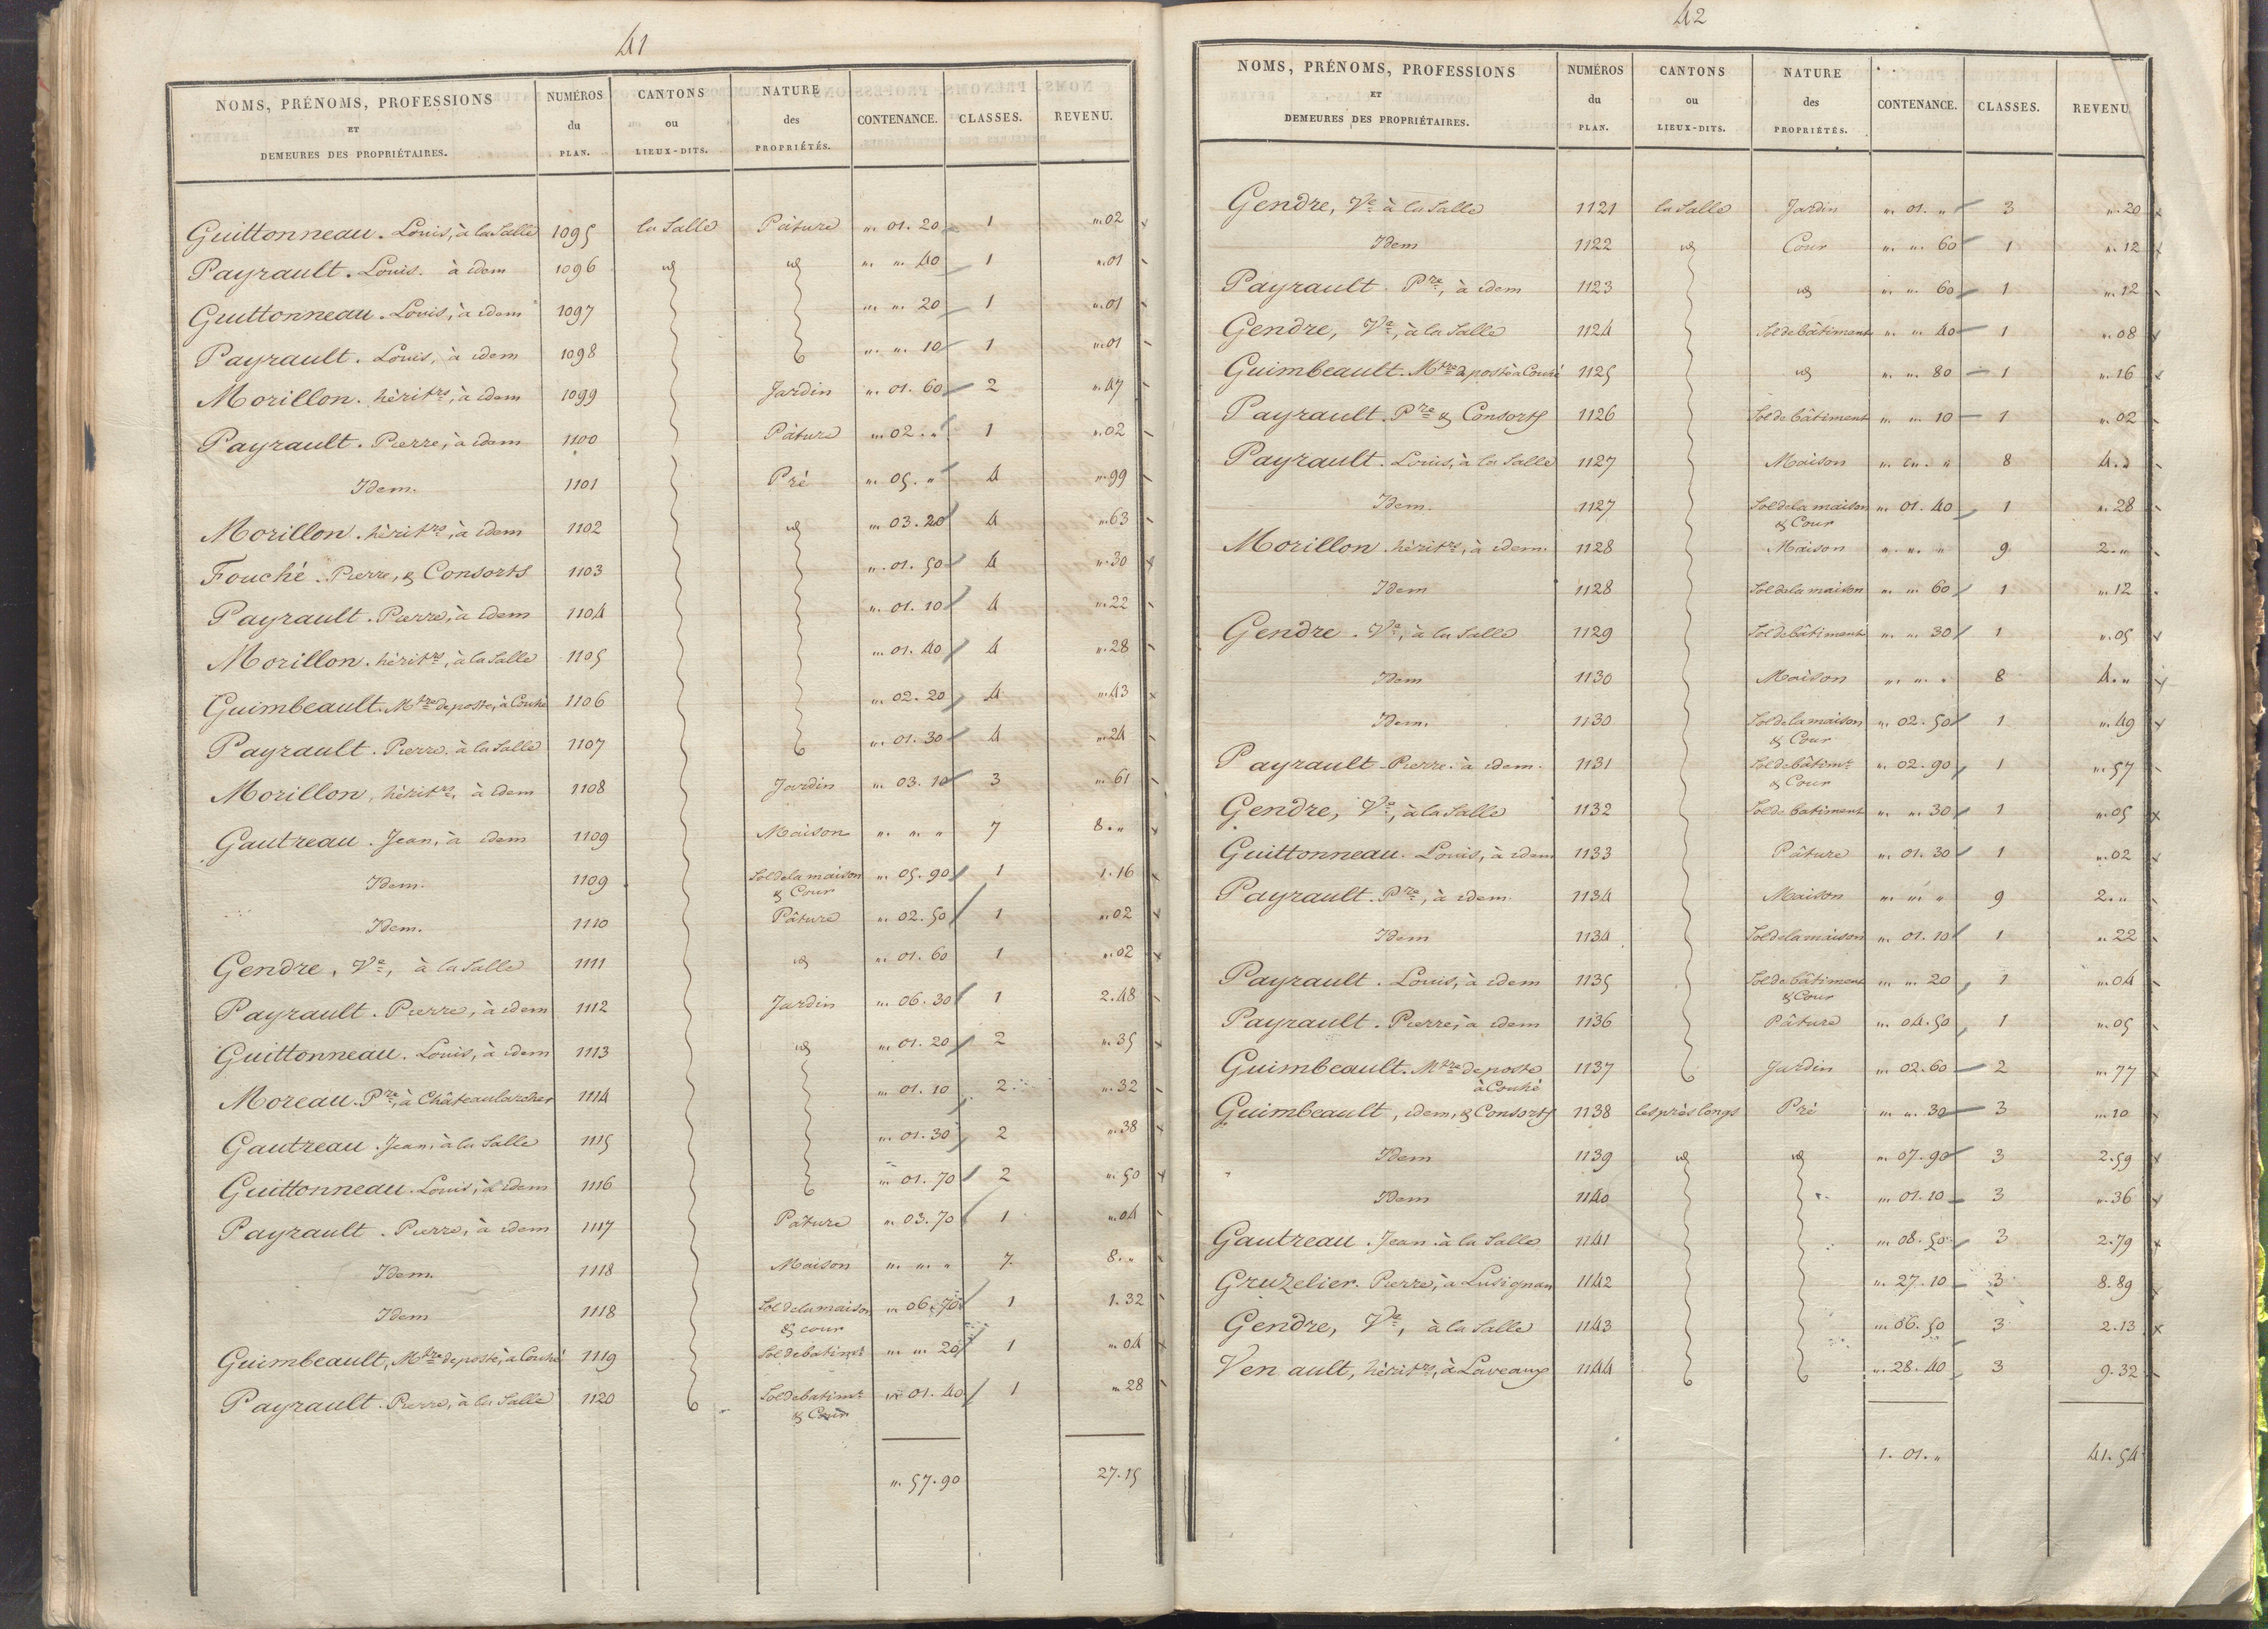 41
NOMS, PRÉNOMS, PROFESSIONS ET DEMEURES DES PROPRIÉTAIRES. NUMÉROS du PLAN. CANTONS ou LIEUX-DITS. NATURE des PROPRIÉTÉS. CONTENANCE. CLASSES. REVENU.
Guittonneau. Louis, à la Salle 1095 la Salle Pâture " 01. 20 1 ".02
Payrault. Louis. à idem 1096 id id " " 40 1 ".01
Guittonneau. Louis, à idem 1097 " " 20 1 ".01
Payrault. Louis, à idem 1098 " " 10 1 ".01
Morillon. hérit.rs, à idem 1099 Jardin " 01. 60 2 ".47
Payrault. Pierre, à idem 1100 Pâture " 02. " 1 ".02
Idem. 1101 Pré " 05. " 4 ".99
Morillon. hérit.rs, à idem 1102 id " 03. 20 4 ".63
Fouché. Pierre, & Consorts 1103 " 01. 50 4 ".30
Payrault. Pierre, à idem 1104 " 01. 10 4 ".22
Morillon. hérit.rs, à la Salle 1105 " 01. 40 4 ".28
Guimbeault. M.tre de poste, à Couhé 1106 " 02. 20 4 ".43
Payrault. Pierre. à la Salle 1107 " 01. 30 4 ".24
Morillon, hérit.rs, à idem 1108 Jardin " 03. 10 3 ".61
Gautreau. Jean, à idem 1109 Maison " " " 7 8."
Idem. 1109 Sol de la maison " 05. 90 1 1.16
& Cour
Idem. 1110 Pâture " 02. 50 1 ".02
Gendre, V.e, à la Salle 1111 id " 01. 60 1 ".02
Payrault. Pierre, à idem 1112 Jardin " 06. 30 1 2.48
Guittonneau. Louis, à idem 1113 id " 01. 20 2 ".35
Moreau. P.re, à Châteaularcher 1114 " 01. 10 2 ".32
Gautreau. Jean, à la Salle 1115 " 01. 30 2 ".38
Guittonneau. Louis, à idem 1116 " 01. 70 2 ".50
Payrault. Pierre, à idem 1117 Pature " 03. 70 1 ".04
Idem. 1118 Maison " " " 7 8."
Idem 1118 Sol de la maison " 06. 70 1 1.32
& cour
Guimbeault, M.tre de poste, à Couhé 1119 Sol de batim.t " " 20 1 ".04
Payrault. Pierre, à la Salle 1120 Sol de batim.t " 01. 40 1 ".28
& Cour
". 57. 90 27.15
42
NOMS, PRÉNOMS, PROFESSIONS ET DEMEURES DES PROPRIÉTAIRES. NUMÉROS du PLAN. CANTONS ou LIEUX-DITS. NATURE des PROPRIÉTÉS. CONTENANCE. CLASSES. REVENU.
Gendre, V.e à la Salle 1121 la Salle Jardin " 01. " 3 ".20
Idem 1122 id Cour " " 60 1 ".12
Payrault. P.re, à idem 1123 id " " 60 1 ".12
Gendre, V.e, à la Salle 1124 Sol de bâtiment " " 40 1 ".08
Guimbeault. M.tre de poste à Couhé 1125 id " " 80 1 ".16
Payrault. P.re & Consorts 1126 Sol de bâtiment " " 10 1 ".02
Payrault. Louis, à la Salle 1127 Maison " " " 8 4."
Idem. 1127 Sol de la maison " 01. 40 1 ".28
& Cour
Morillon. hérit.rs, à idem. 1128 Maison " " " 9 2."
Idem 1128 Sol de la maison " " 60 1 ".12
Gendre. V.e, à la Salle 1129 Sol de bâtiment " " 30 1 ".05
Idem 1130 Maison " " " 8 4."
Idem. 1130 Sol de la maison " 02. 50 1 ".49
& Cour
Payrault. Pierre. à idem. 1131 Sol de bâtim.t " 02. 90 1 ".57
& Cour
Gendre, V.e, à la Salle 1132 Sol de batiment " " 30 1 ".05
Guittonneau. Louis, à idem 1133 Pâture " 01. 30 1 ".02
Payrault. P.re, à idem 1134 Maison " " " 9 2."
Idem 1134 Sol de la maison " 01. 10 1 ".22
Payrault. Louis, à idem 1135 Sol de bâtiment " " 20 1 ".04
& Cour
Payrault. Pierre, à idem 1136 Pâture " 04. 50 1 ".05
Guimbeault. M.tre de poste 1137 Jardin " 02. 60 2 ".77
à Couhé
Guimbeault, idem, & Consorts 1138 les prés longs Pré " " 30 3 ".10
Idem 1139 id id " 07. 90 3 2.59
Idem 1140 " 01. 10 3 ".36
Gautreau. Jean. à la Salle 1141 " 08. 50 3 2.79
Gruzelier. Pierre, à Lusignan 1142 " 27. 10 3 8.89
Gendre, V.e, à la Salle 1143 " 06. 50 3 2.13
Venault, hérit.rs, à Laveaux 1144 " 28. 40 3 9.32
1. 01. " 41.54